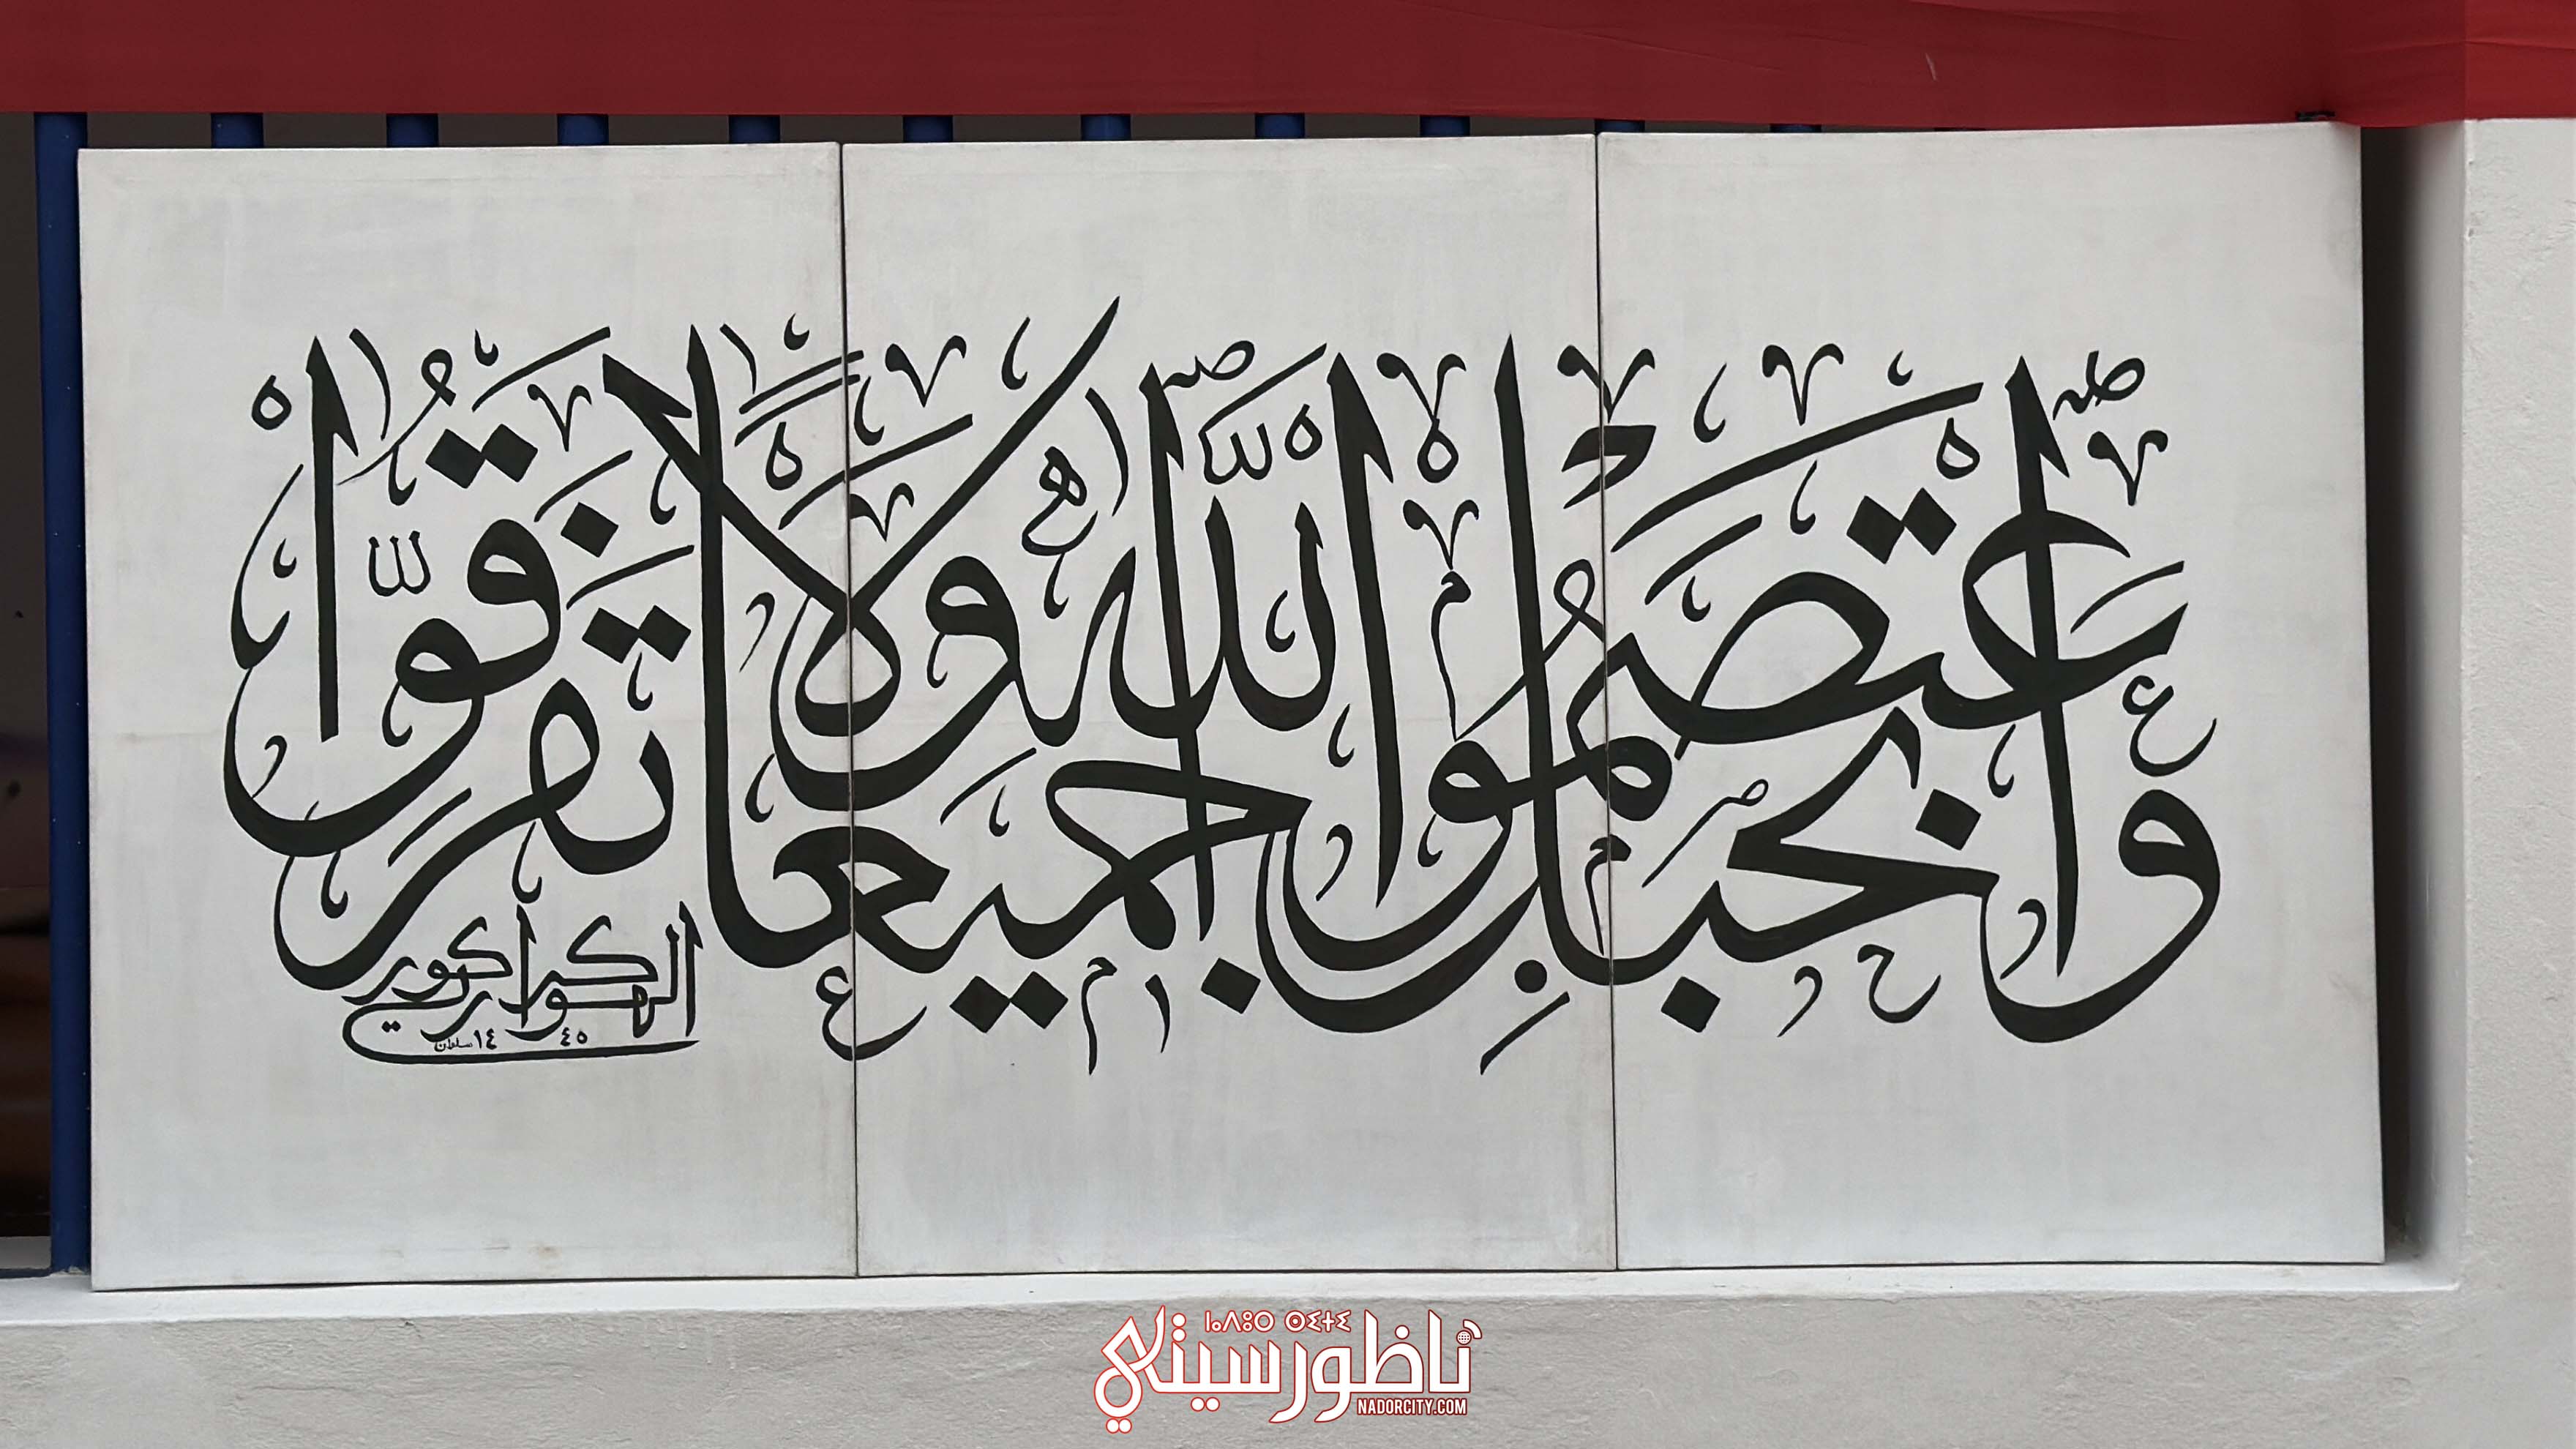 واعتصموا بحبل الله جميعا ولا تفرقوا
الهواري
١٤٤٥
ⵏⴰⴷⵓⵔ ⵙⵉⵜⵉ
ناظورسيتي
NADORCITY.COM